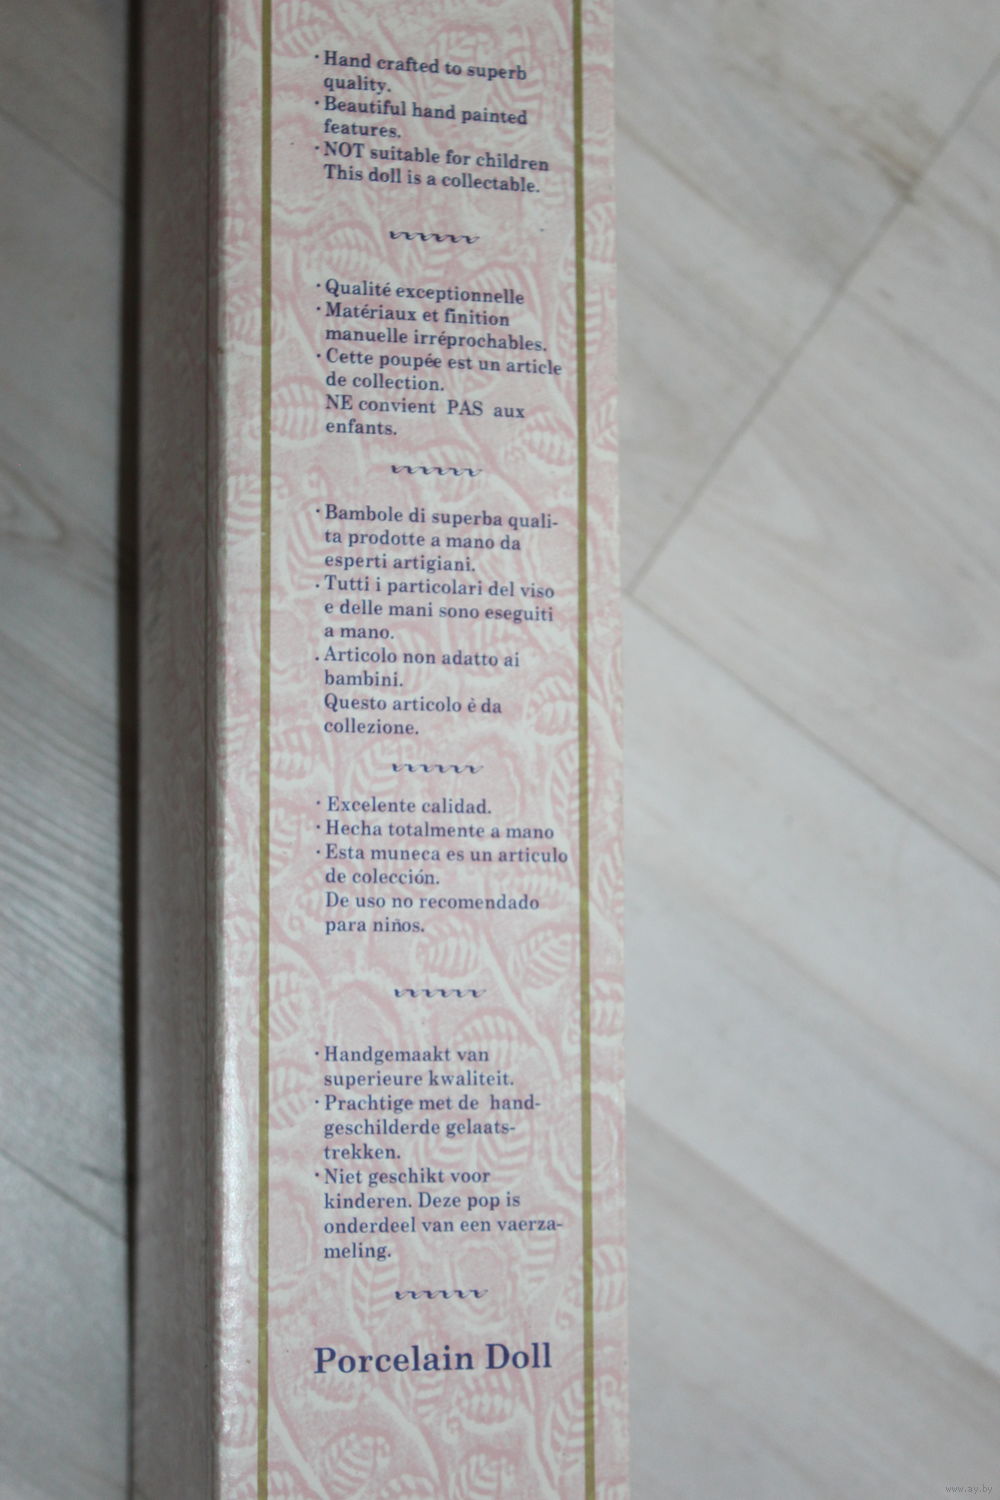 · Hand crafted to superb
quality.
· Beautiful hand painted
features.
· NOT suitable for children
This doll is a collectable.
· Qualité exceptionnelle
· Matériaux et finition
manuelle irréprochables.
· Cette poupée est un article
de collection.
NE convient PAS aux
enfants.
· Bambole di superba quali-
ta prodotte a mano da
esperti artigiani.
. Tutti i particolari del viso
e delle mani sono eseguiti
a mano.
. Articolo non adatto ai
bambini.
Questo articolo è da
collezione.
· Excelente calidad.
· Hecha totalmente a mano
· Esta muneca es un articulo
de colección.
De uso no recomendado
para niños.
· Handgemaakt van
superieure kwaliteit.
· Prachtige met de hand-
geschilderde gelaats-
trekken.
· Niet geschikt voor
kinderen. Deze pop is
onderdeel van een vaerza-
meling.
Porcelain Doll
www.ay.by